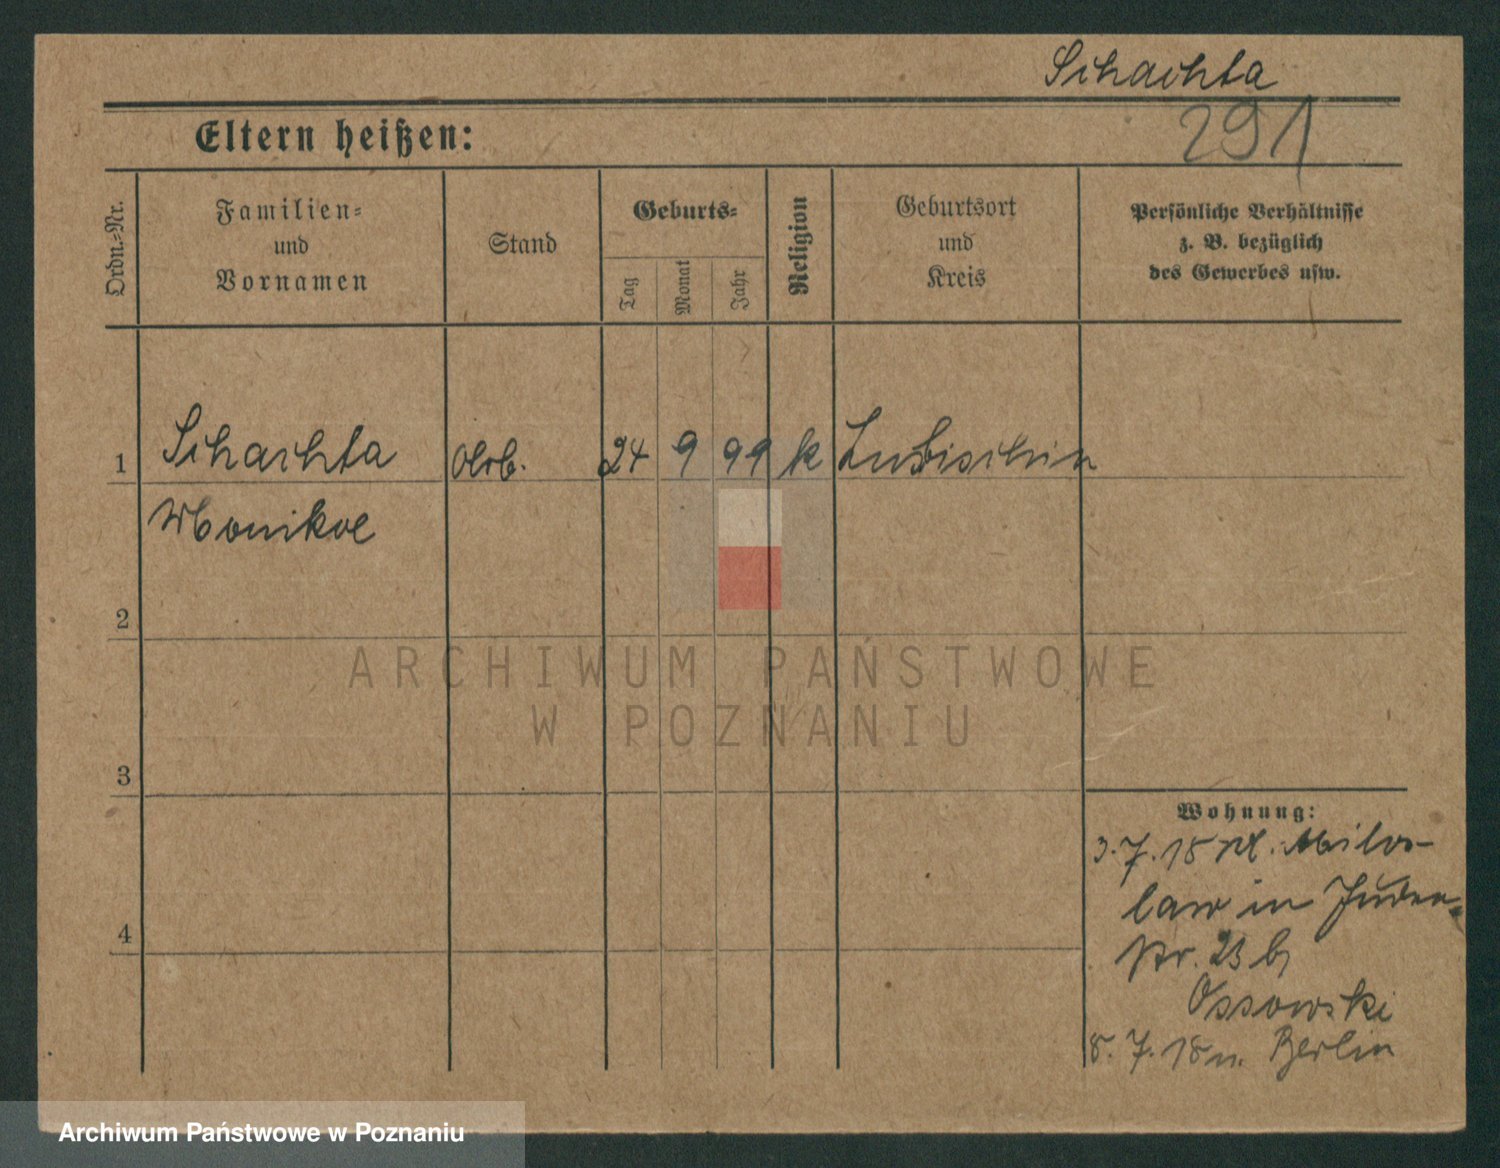 Schachta
291
Eltern heißen:
Ordn.-Nr.
Familien-
und
Vornamen
Stand
Geburts-
Tag
Monat
Jahr
Religion
Geburtsort
und
Kreis
Persönliche Verhältnisse
z. B. bezüglich
des Gewerbes usw.
1 Schachta Arb. 24 9 99 k Ludischin
Monika
2
ARCHIWUM PAŃSTWOWE
W POZNANIU
3
Wohnung:
3.7.18 v. Milos-
law in Juden-
str. 23 b/
4
Ossowski
8.7.18 n. Berlin
Archiwum Państwowe w Poznaniu